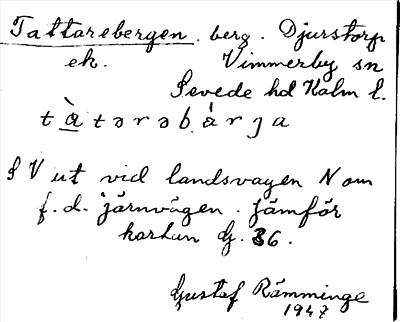 Tattarebergen. berg. Djurstorp
ek. Vimmerby sn
Sevede hd Kalm l.
tàtərəbárja
S V ut vid landsvagen N om
f. d. järnvägen. jämför
kartan G. 36.
Gustaf Rämminge
1947